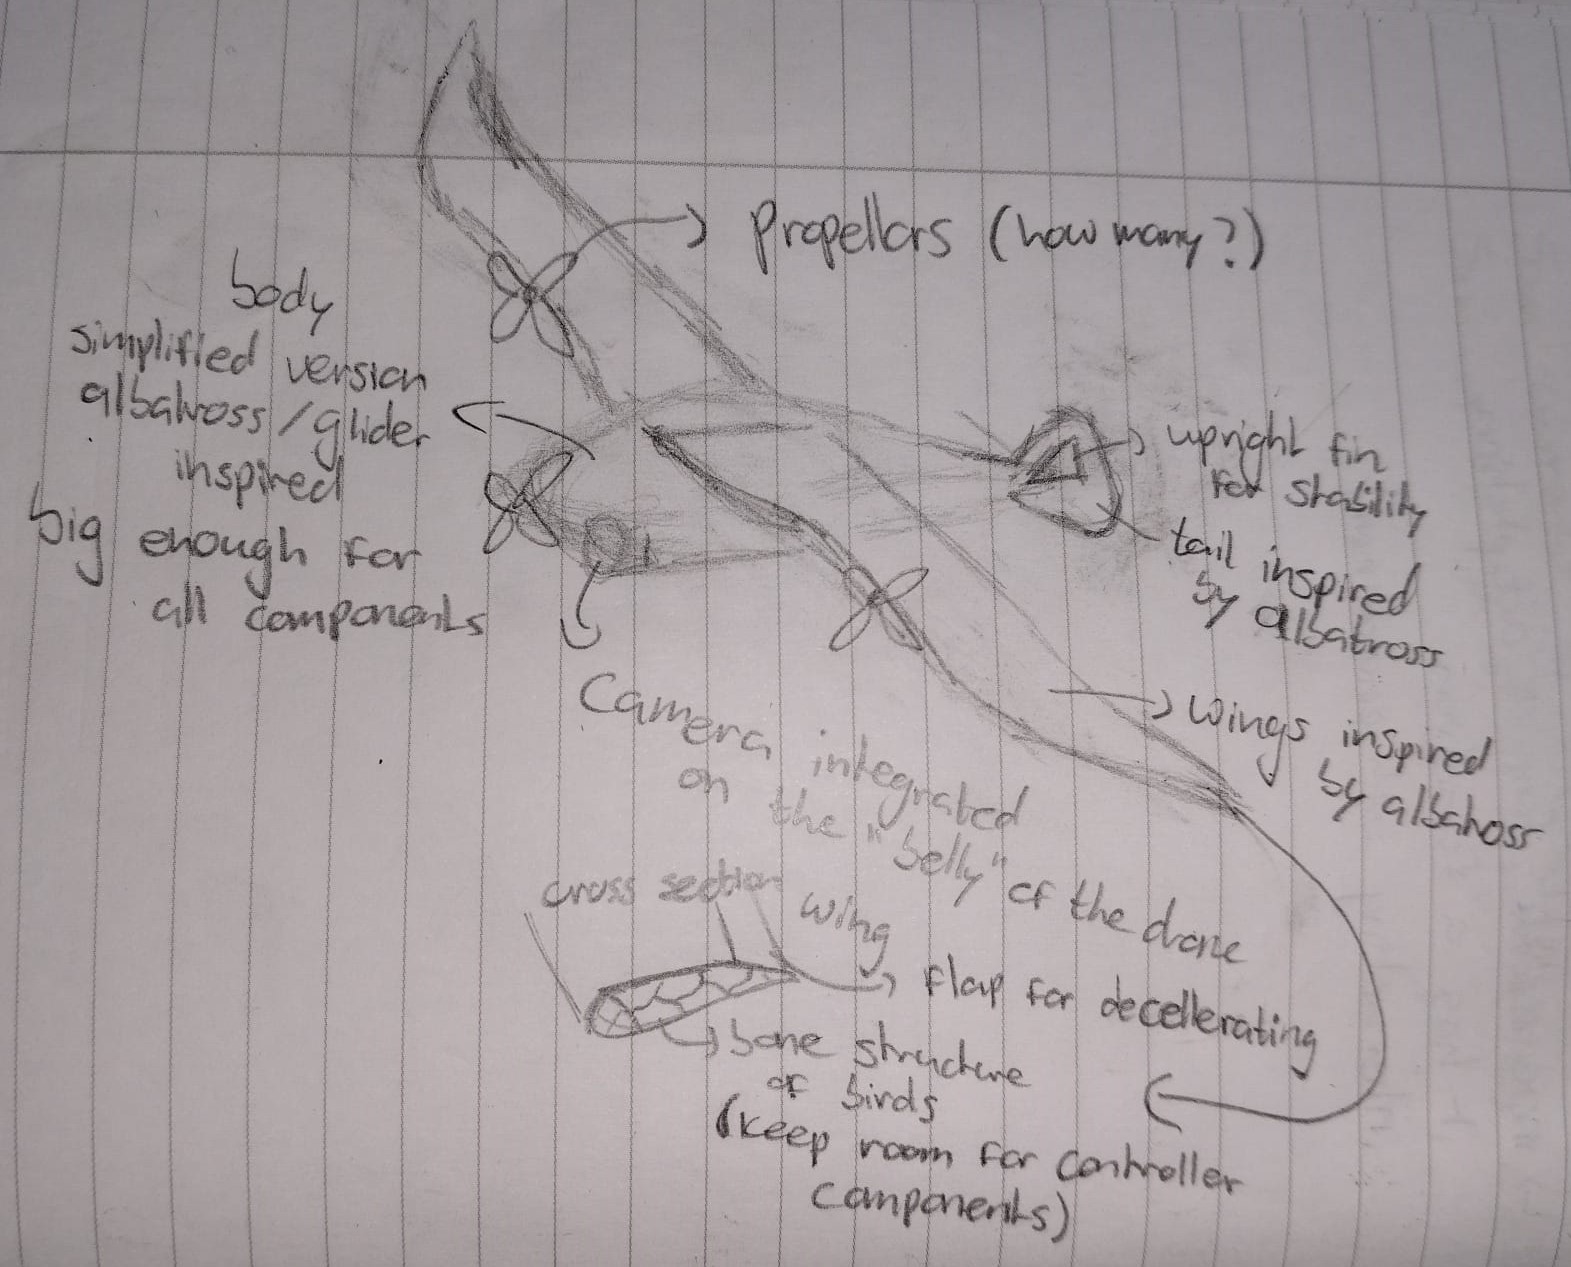 Propellors (how many?)
body
simplified version
albatross/glider
inspired
big enough for
all components
upright fin
for stability
tail inspired
by albatross
wings inspired
by albatross
Camera integrated
on the "belly" of the drone
cross section wing
flap for decellerating
bone structure
of birds
(keep room for controller
components)